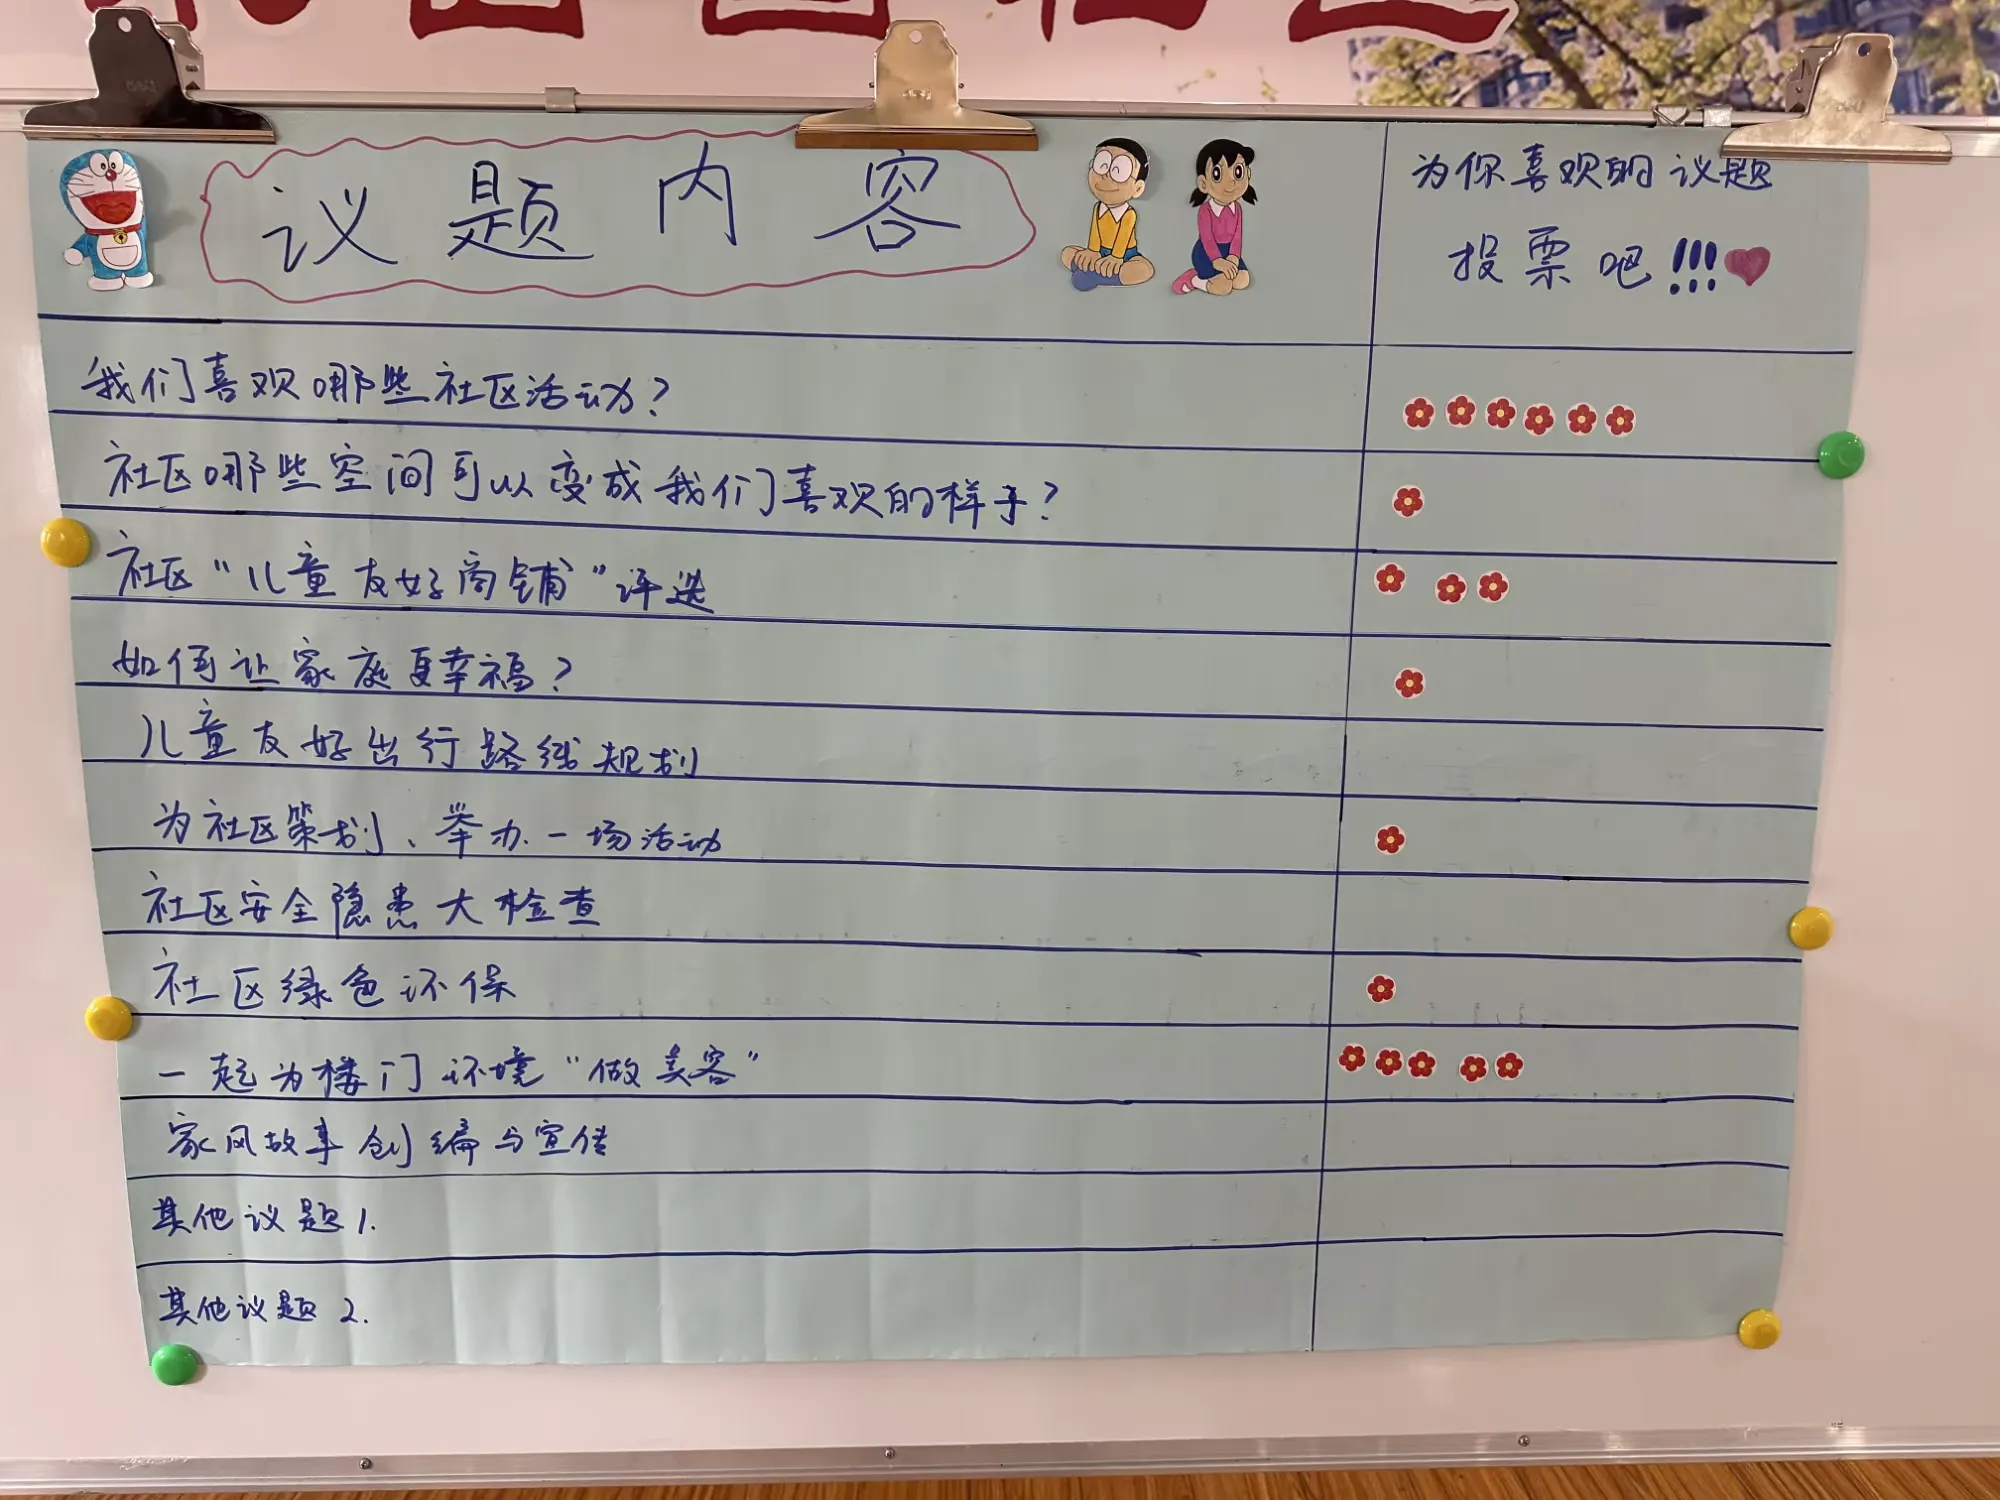 议题内容
为你喜欢的议题
投票吧!!!
我们喜欢哪些社区活动?
社区哪些空间可以变成我们喜欢的样子?
社区“儿童友好商铺”评选
如何让家庭更幸福?
儿童友好出行路线规划
为社区策划、举办一场活动
社区安全隐患大检查
社区绿色环保
一起为楼门环境“做美容”
家风故事创编与宣传
其他议题1.
其他议题2.